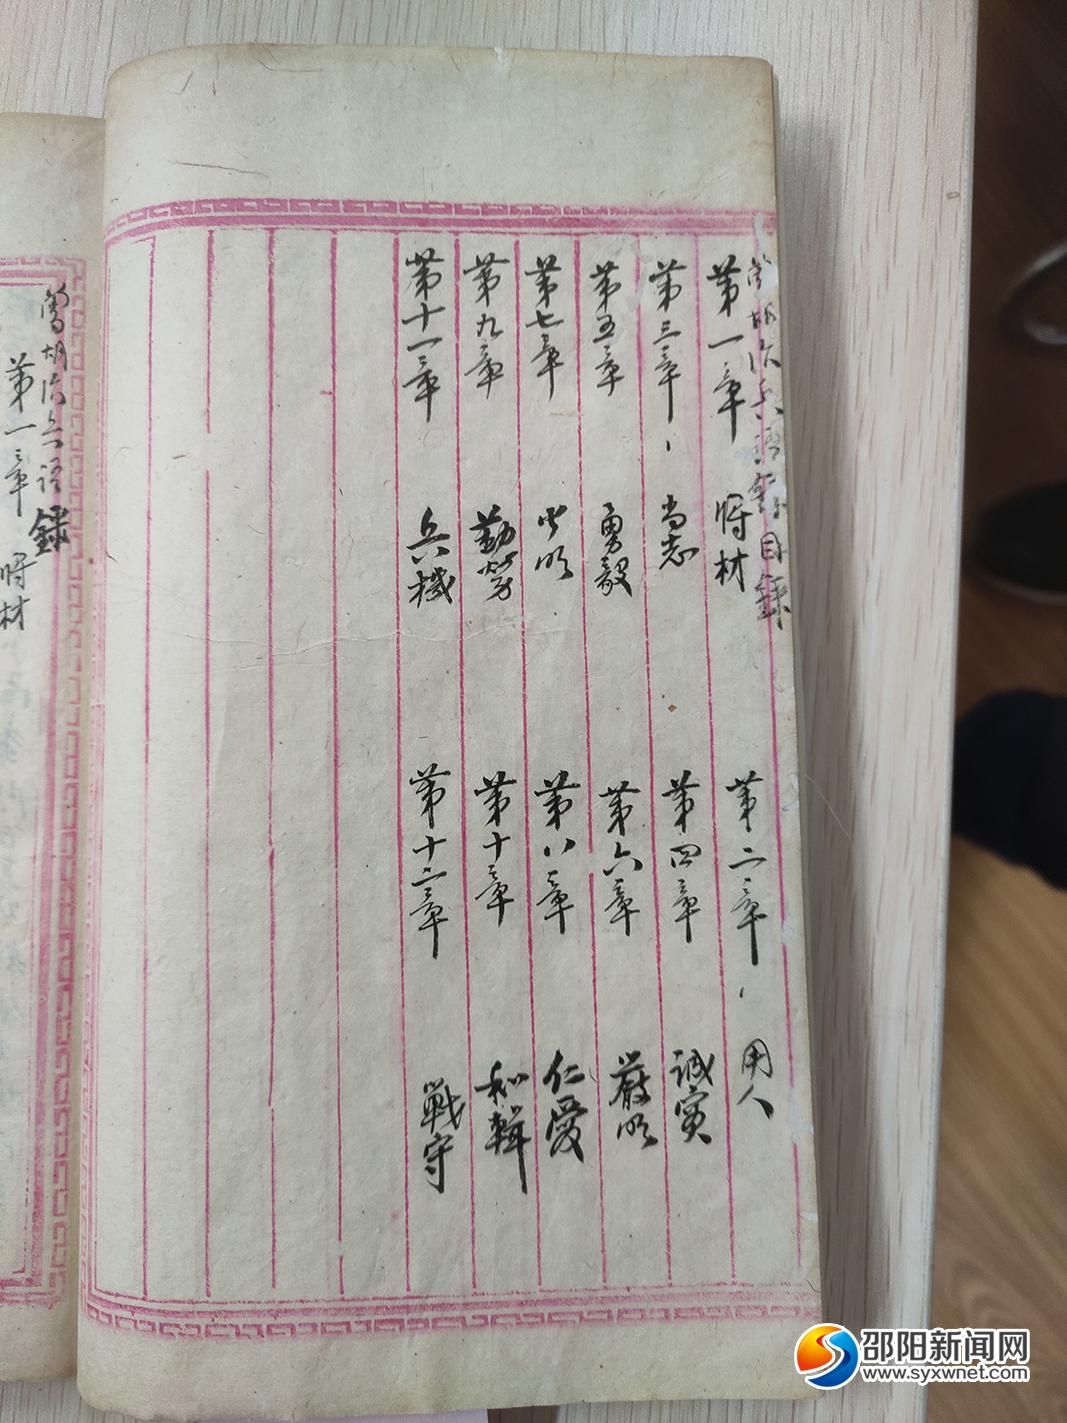 曾胡治兵語錄目錄
第一章 將材 第二章 用人
第三章 尚志 第四章 誠實
第五章 勇毅 第六章 嚴明
第七章 公明 第八章 仁愛
第九章 勤勞 第十章 和輯
第十一章 兵機 第十二章 戰守
曾胡治兵語錄
第一章 將材
邵阳新闻网
www.syxwnet.com